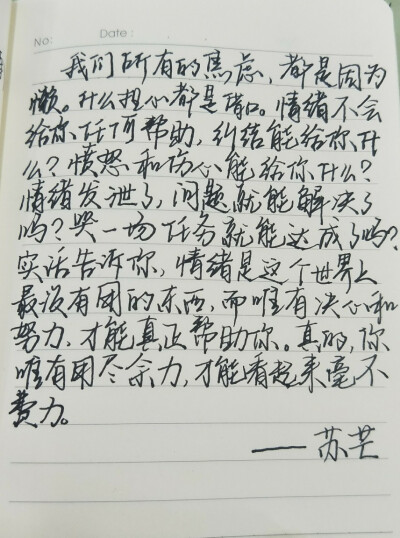 No:
Date:
我们所有的焦虑，都是因为
懒。什么担心都是借口。情绪不会
给你任何帮助，纠结能给你什
么？愤怒和伤心能给你什么？
情绪发泄了，问题就能解决了
吗？哭一场任务就能达成了吗？
实话告诉你，情绪是这个世界上
最没有用的东西，而唯有决心和
努力，才能真正帮助你。真的，你
唯有用尽余力，才能看起来毫不
费力。
——苏芒